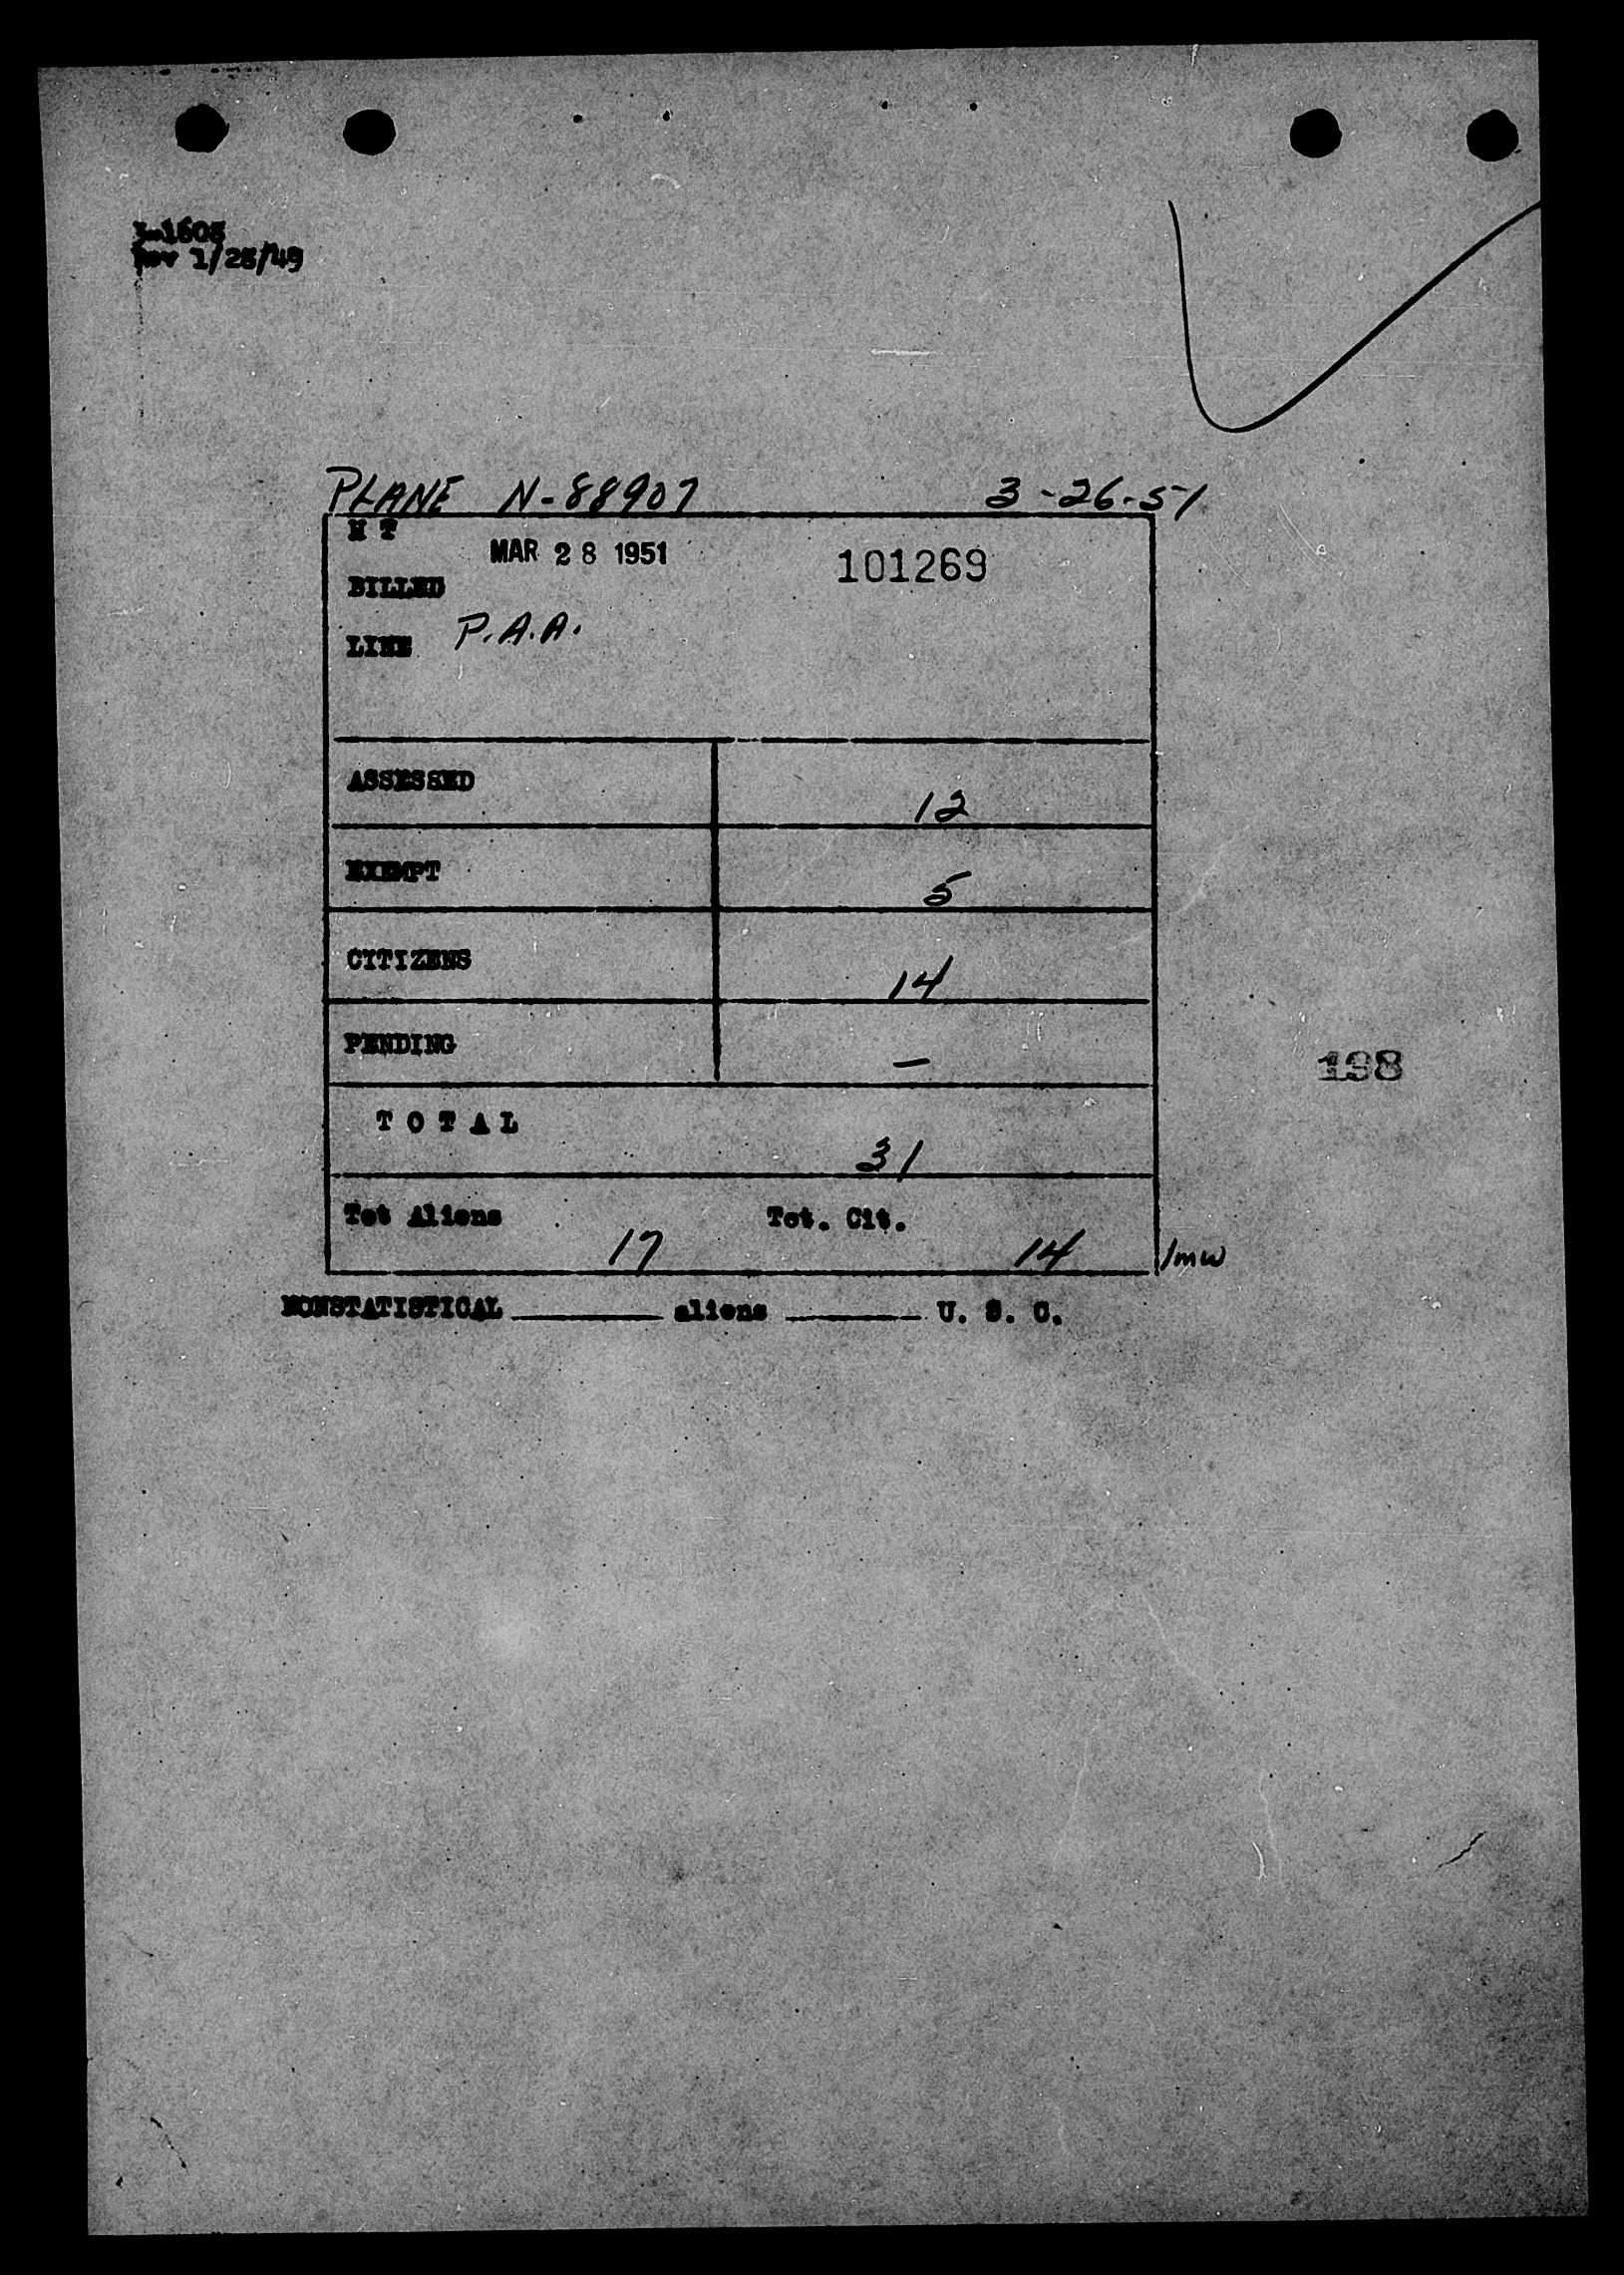 3-1605
Rev 1/25/49
PLANE N-88907 3-26-51
H T
MAR 28 1951 101269
BILLED
LINE P.A.A.
ASSESSED 12
EXEMPT 5
CITIZENS 14
PENDING —
T O T A L 31
198
Tot Aliens 17 Tot. Cit. 14 /mw
NONSTATISTICAL ______ aliens ______ U. S. C.